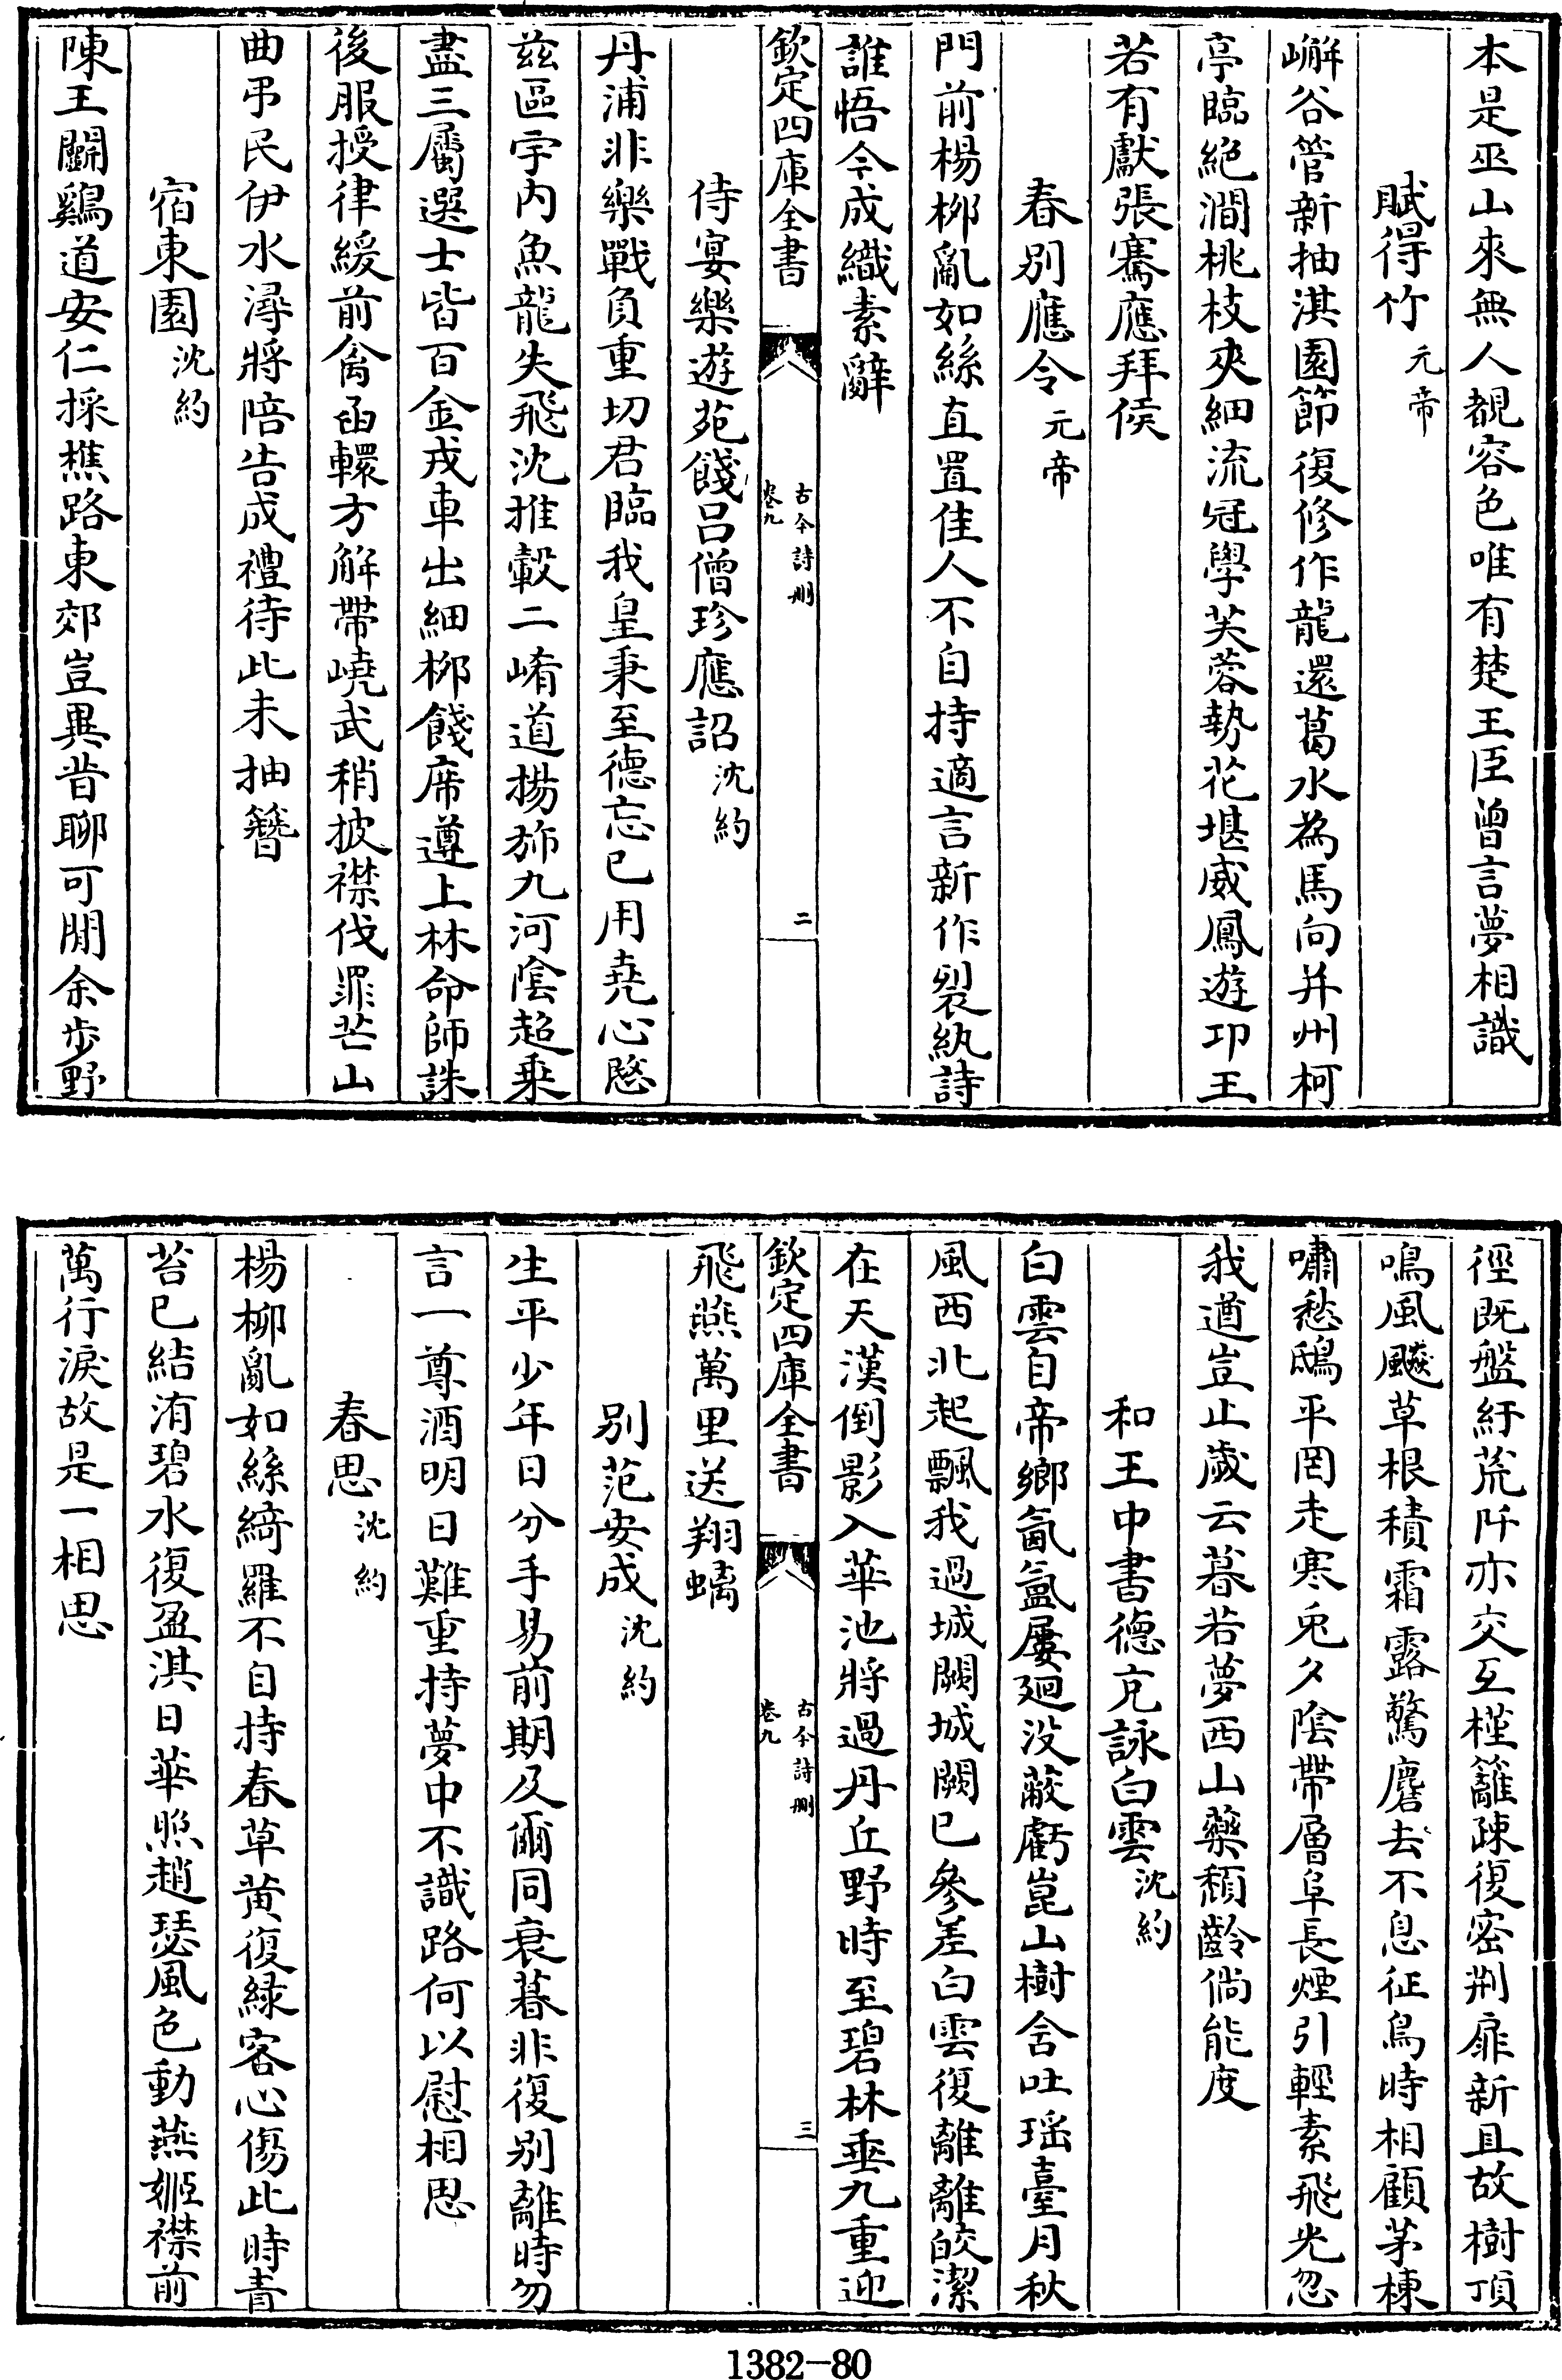 本是巫山來無人覩容色唯有楚王臣曾言夢相識
賦得竹元帝
嶰谷管新抽淇園節復修作龍還葛水為馬向并州柯
亭臨絶澗桃枝夾細流冠學芙蓉勢花堪威鳳遊卭王
若有獻張騫應拜侯
春别應令元帝
門前楊栁亂如絲直置佳人不自持適言新作裂紈詩
誰悟今成織素辭
欽定四庫全書
古今詩刪
卷九
二
侍宴樂遊苑餞吕僧珍應詔沈約
丹浦非樂戰負重切君臨我皇秉至德忘已用堯心愍
兹區宇内魚龍失飛沈推轂二崤道揚斾九河陰超乗
盡三屬選士皆百金戎車出細栁餞席遵上林命師誅
後服授律緩前禽函轘方解帶嶢武稍披襟伐罪芒山
曲弔民伊水潯將陪告成禮待此未抽簪
宿東園沈約
陳王鬭鷄道安仁採樵路東郊豈異昔聊可閒余步野
徑既盤紆荒阡亦交互槿籬疎復密荆扉新且故樹頂
鳴風飈草根積霜露驚麏去不息征鳥時相顧茅棟
嘯愁鴟平岡走寒兎夕陰帶層阜長煙引輕素飛光忽
我遒豈止歲云暮若夢西山藥頽齡倘能度
和王中書德充詠白雲沈約
白雲自帝鄉氤氲屢廻没蔽虧崑山樹含吐瑶臺月秋
風西北起飄我過城闕城闕已參差白雲復離離皎潔
在天漢倒影入華池將過丹丘野時至碧林垂九重迎
欽定四庫全書
古今詩刪
卷九
三
飛燕萬里送翔螭
别范安成沈約
生平少年日分手易前期及爾同衰暮非復别離時勿
言一尊酒明日難重持夢中不識路何以慰相思
春思沈約
楊栁亂如絲綺羅不自持春草黄復緑客心傷此時青
苔已結洧碧水復盈淇日華照趙瑟風色動燕姬襟前
萬行淚故是一相思
1382-80